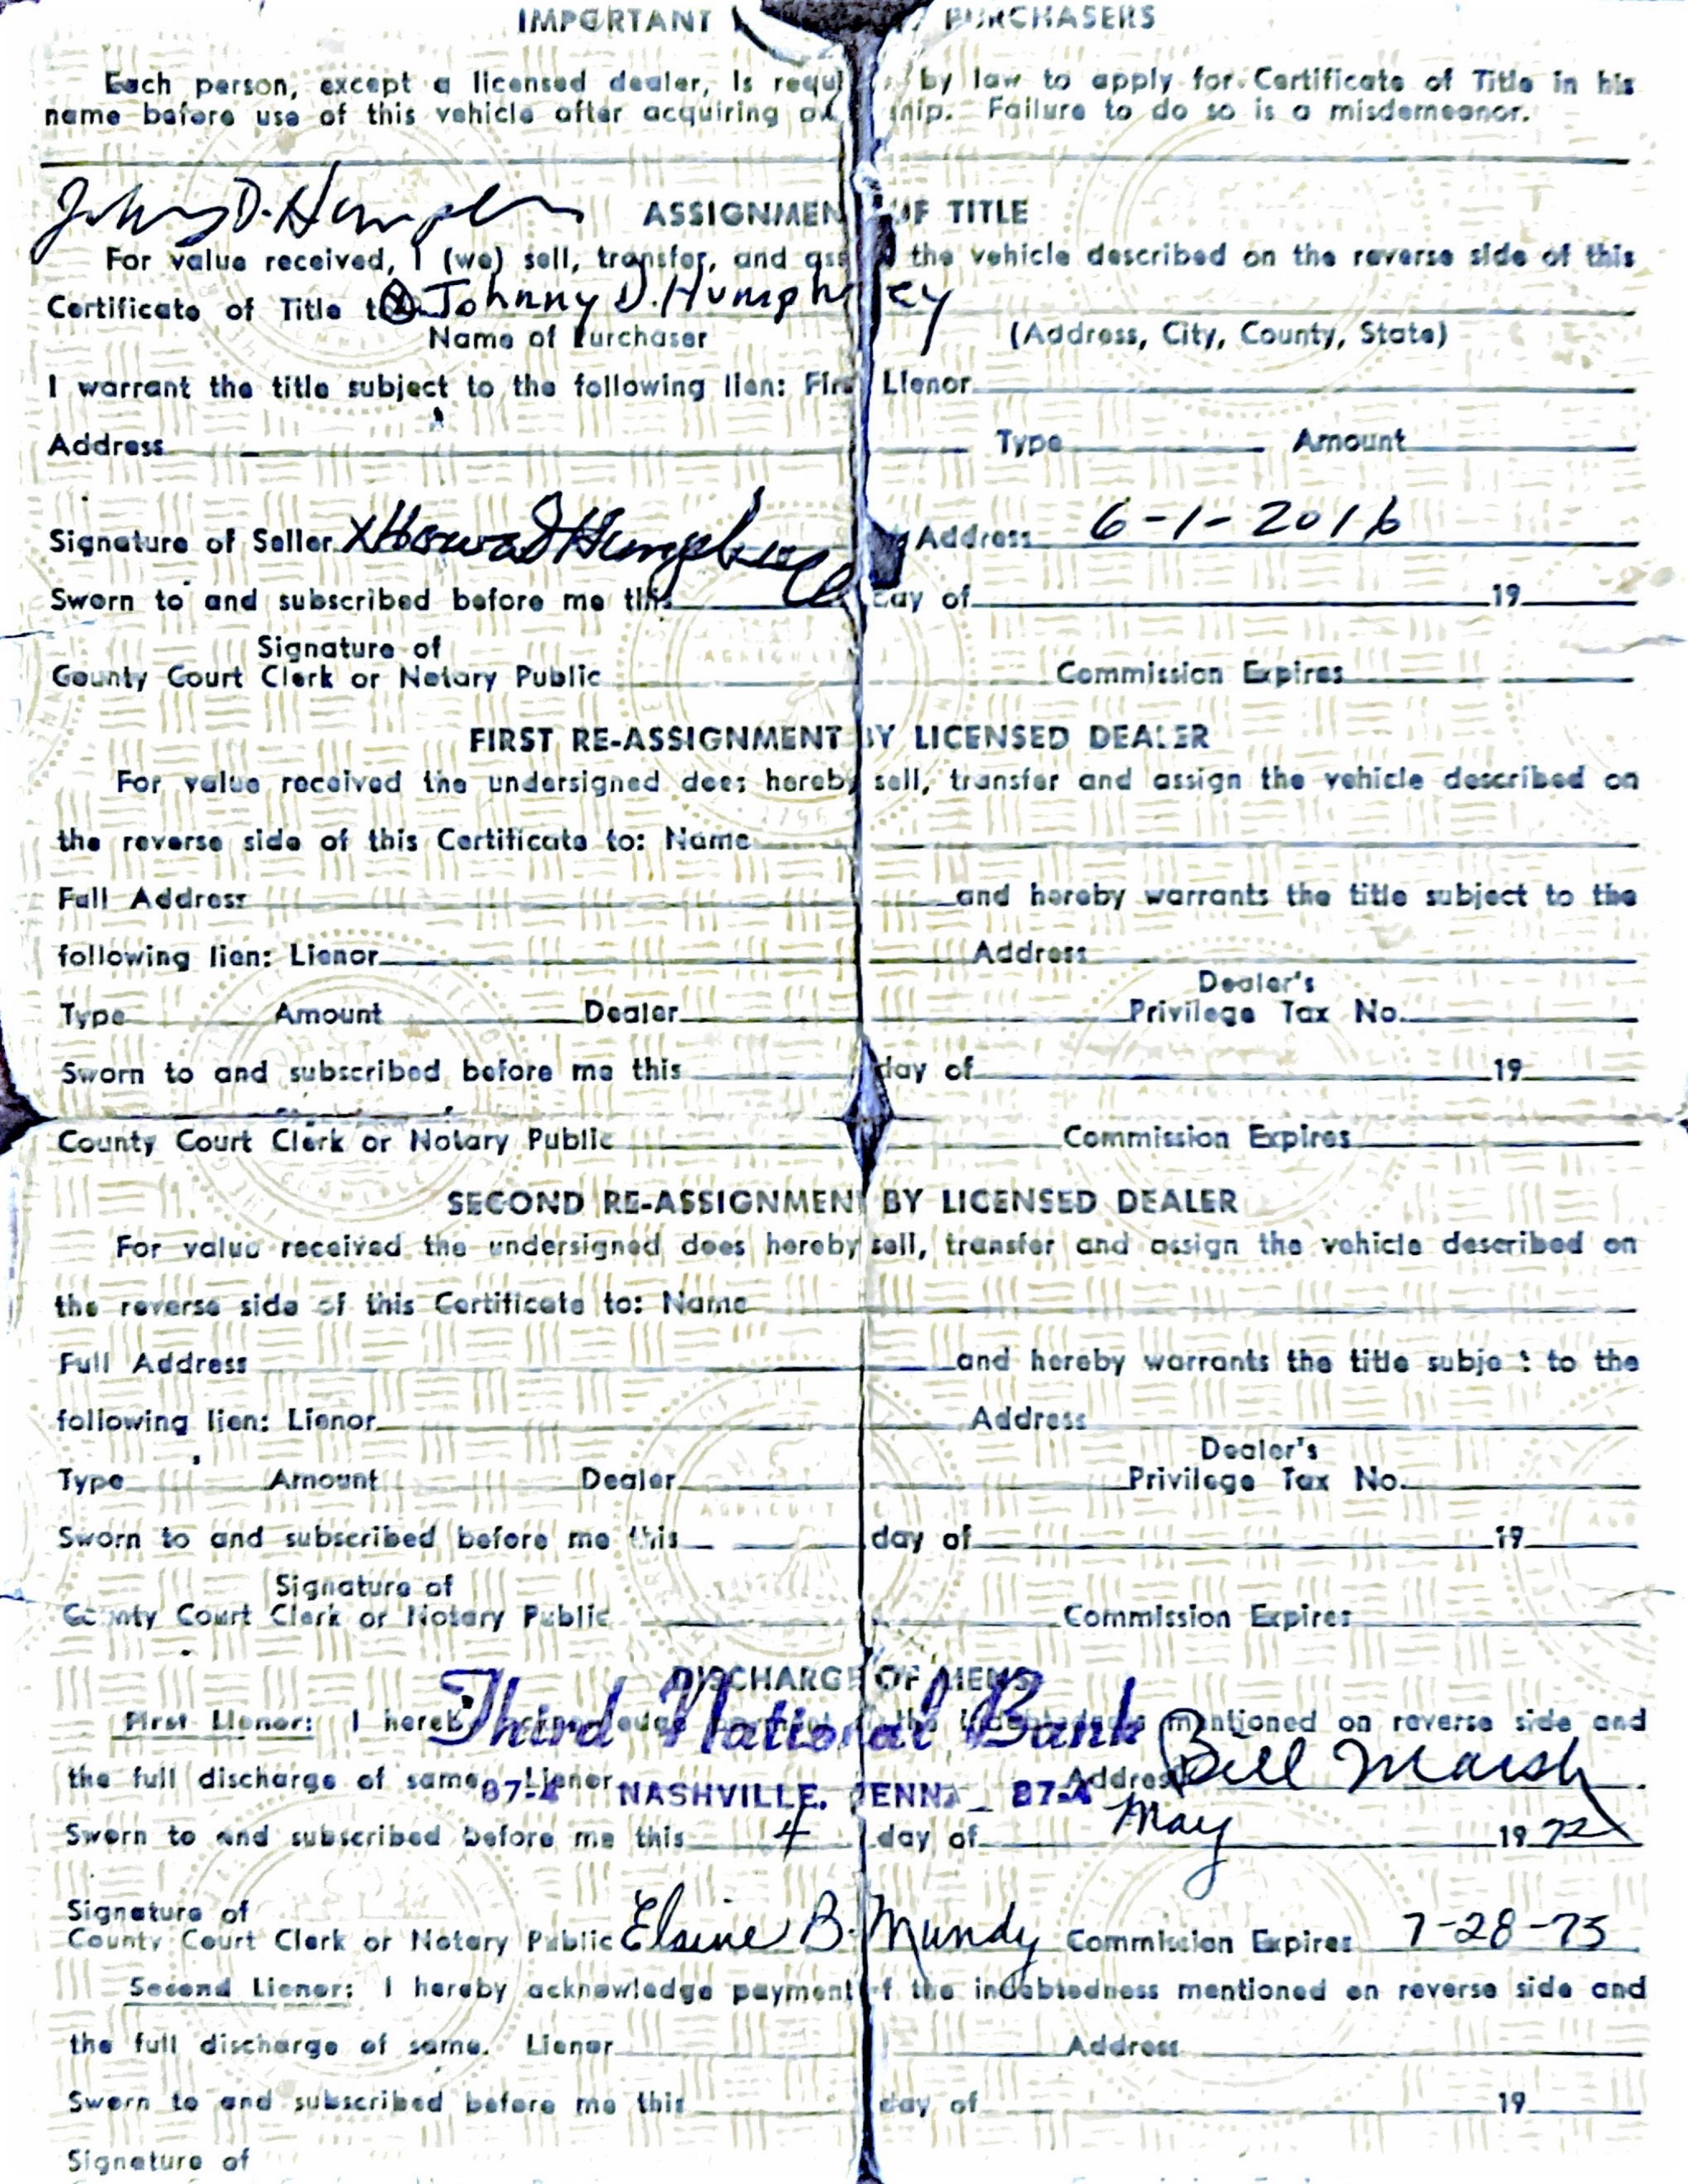 IMPORTANT PURCHASERS
Each person, except a licensed dealer, Is by law to apply for Certificate of Title in his
name before use of this vehicle after acquiring Failure to do so is a misdemeanor.
ASSIGNMEN OF TITLE
For value received, I (we) sell, transfer, and the vehicle described on the reverse side of this
Certificate of Title Johnny D. Humphrey
Name of Purchaser (Address, City, County, State)
I warrant the title subject to the following lien: First Lienor
Address Type Amount
Signature of Seller X Howard Humphrey Address 6-1-2016
Sworn to and subscribed before me this day of 19
Signature of
County Court Clerk or Notary Public Commission Expires
FIRST RE-ASSIGNMENT BY LICENSED DEALER
For value received the undersigned does hereby sell, transfer and assign the vehicle described on
the reverse side of this Certificate to: Name
Full Address and hereby warrants the title subject to the
following lien: Lienor Address
Dealer's
Type Amount Dealer Privilege Tax No.
Sworn to and subscribed before me this day of 19
County Court Clerk or Notary Public Commission Expires
SECOND RE-ASSIGNMENT BY LICENSED DEALER
For value received the undersigned does hereby sell, transfer and assign the vehicle described on
the reverse side of this Certificate to: Name
Full Address and hereby warrants the title subject to the
following lien: Lienor Address
Dealer's
Type Amount Dealer Privilege Tax No.
Sworn to and subscribed before me this day of 19
Signature of
County Court Clerk or Notary Public Commission Expires
DISCHARGE OF LIENS
Third National Bank
First Lienor: I hereby mentioned on reverse side and
the full discharge of same. Lienor Address Bill Marsh
NASHVILLE, TENN.
Sworn to and subscribed before me this 4 day of May 1972
Signature of
County Court Clerk or Notary Public Elaine B. Mundy Commission Expires 7-28-75
Second Lienor: I hereby acknowledge payment of the indebtedness mentioned on reverse side and
the full discharge of same. Lienor Address
Sworn to and subscribed before me this day of 19
Signature of